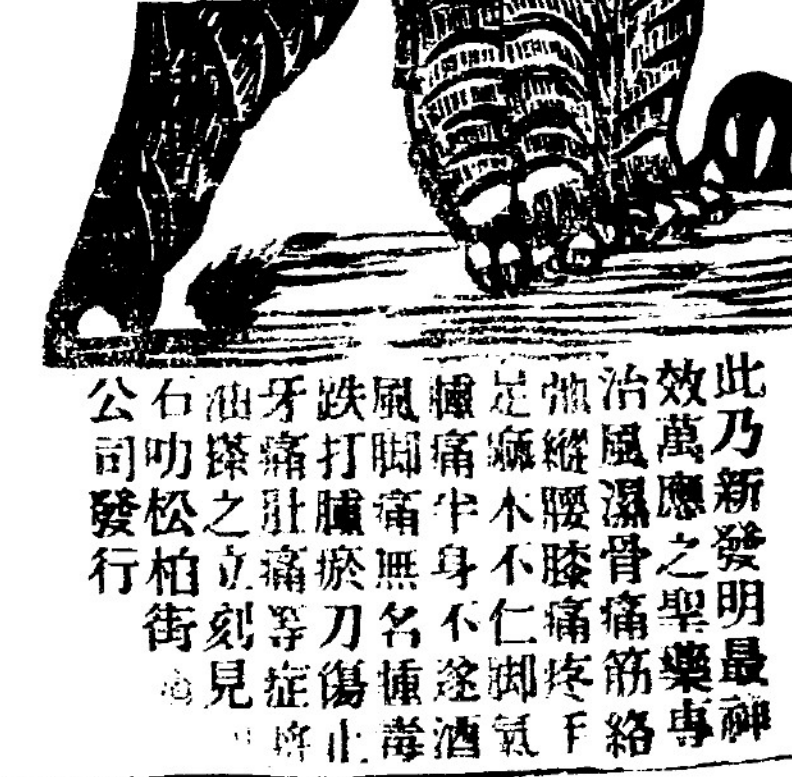 此乃新發明最神
效萬應之聖藥專
治風濕骨痛筋絡
弛縱腰膝痛疼手
足痲木不仁脚氣
腫痛半身不遂酒
風脚痛無名腫毒
跌打腫瘀刀傷止
牙痛肚痛等症
油搽之立刻見
石叻松柏街
公司發行